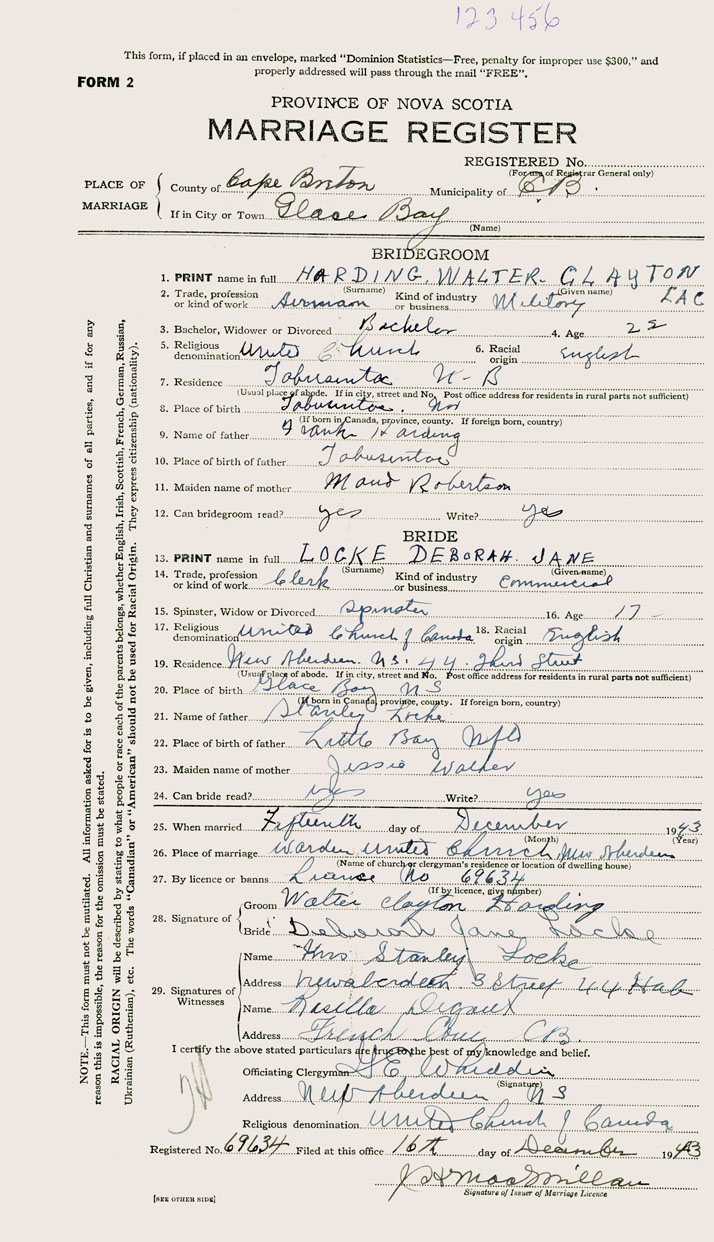 123 456
This form, if placed in an envelope, marked "Dominion Statistics—Free, penalty for improper use $300," and
properly addressed will pass through the mail "FREE".
FORM 2
PROVINCE OF NOVA SCOTIA
MARRIAGE REGISTER
REGISTERED No.
(For use of Registrar General only)
PLACE OF MARRIAGE
County of Cape Breton Municipality of C.B.
If in City or Town Glace Bay
(Name)
BRIDEGROOM
1. PRINT name in full HARDING. WALTER. CLAYTON
(Surname) (Given name)
2. Trade, profession or kind of work Airman Kind of industry or business Military LAC
3. Bachelor, Widower or Divorced Bachelor 4. Age 22
5. Religious denomination United Church 6. Racial origin English
7. Residence Tabusintac N-B
(Usual place of abode. If in city, street and No. Post office address for residents in rural parts not sufficient)
8. Place of birth Tabusintac.
(If born in Canada, province, county. If foreign born, country)
9. Name of father Frank Harding
10. Place of birth of father Tabusintac
11. Maiden name of mother Maud Robertson
12. Can bridegroom read? yes Write? yes
BRIDE
13. PRINT name in full LOCKE DEBORAH. JANE
(Surname) (Given name)
14. Trade, profession or kind of work Clerk Kind of industry or business Commercial
15. Spinster, Widow or Divorced Spinster 16. Age 17
17. Religious denomination United Church of Canada 18. Racial origin English
19. Residence New Aberdeen. N.S. 44. Third Street
(Usual place of abode. If in city, street and No. Post office address for residents in rural parts not sufficient)
20. Place of birth Glace Bay NS
(If born in Canada, province, county. If foreign born, country)
21. Name of father Stanley Locke
22. Place of birth of father Little Bay Nfld
23. Maiden name of mother Jessie Walker
24. Can bride read? yes Write? yes
25. When married Fifteenth day of December 1943
(Month) (Year)
26. Place of marriage Warden United Church New Aberdeen
(Name of church or clergyman's residence or location of dwelling house)
27. By licence or banns Licence No 69634
(If by licence, give number)
28. Signature of
Groom Walter Clayton Harding
Bride Deborah Jane Locke
29. Signatures of Witnesses
Name Mrs Stanley Locke
Address New aberdeen 3 Street 44
Name
Address French Cove CB.
I certify the above stated particulars are true to the best of my knowledge and belief.
Officiating Clergyman
(Signature)
Address New Aberdeen NS
Religious denomination United Church of Canada
Registered No. 69634 Filed at this office 16th day of December 1943
J H MacMillan
Signature of Issuer of Marriage Licence
[SEE OTHER SIDE]
NOTE.—This form must not be mutilated. All information asked for is to be given, including full Christian and surnames of all parties, and if for any
reason this is impossible, the reason for the omission must be stated.
RACIAL ORIGIN will be described by stating to what people or race each of the parents belongs, whether English, Irish, Scottish, French, German, Russian,
Ukrainian (Ruthenian), etc. The words "Canadian" or "American" should not be used for Racial Origin. They express citizenship (nationality).